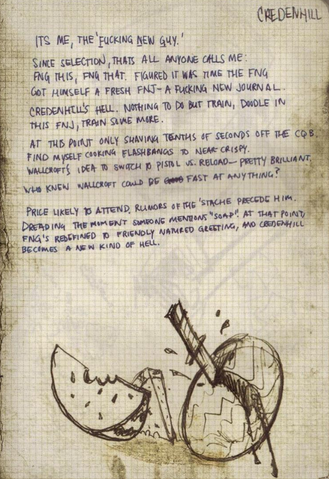 CREDENHILL
ITS ME, THE 'FUCKING NEW GUY.'
SINCE SELECTION, THATS ALL ANYONE CALLS ME:
FNG THIS, FNG THAT. FIGURED IT WAS TIME THE FNG
GOT HIMSELF A FRESH FNJ - A FUCKING NEW JOURNAL.
CREDENHILL'S HELL. NOTHING TO DO BUT TRAIN, DOODLE IN
THIS FNJ, TRAIN SOME MORE.
AT THIS POINT ONLY SHAVING TENTHS OF SECONDS OFF THE CQB.
FIND MYSELF COOKING FLASHBANGS TO NEAR CRISPY.
WALLCROFT'S IDEA TO SWITCH TO PISTOL VS. RELOAD - PRETTY BRILLIANT.
WHO KNEW WALLCROFT COULD BE FAST AT ANYTHING?
PRICE LIKELY TO ATTEND, RUMORS OF THE 'STACHE PRECEDE HIM.
DREADING THE MOMENT SOMEONE MENTIONS "SOAP". AT THAT POINT,
FNG'S REDEFINED TO FRIENDLY NATURED GREETING, AND CREDENHILL
BECOMES A NEW KIND OF HELL.